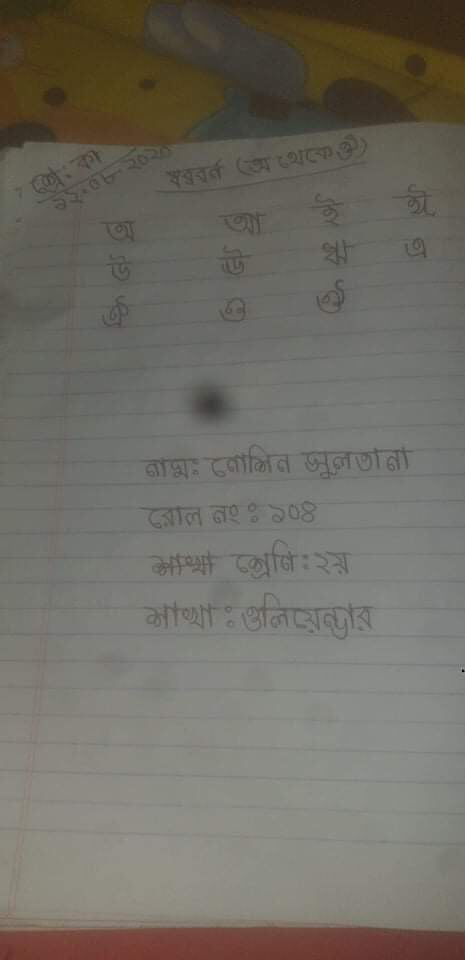 শ্রে: কা
২২.০৮.২০২০
স্বরবর্ন (অ থেকে ঔ)
অ আ ই ঈ
উ ঊ ঋ এ
ঐ ও ঔ
নাম: নোশিন সুলতানা
রোল নং: ১০৪
শাখা শ্রেনি: ২য়
শাখা: ওলিয়েন্ডার